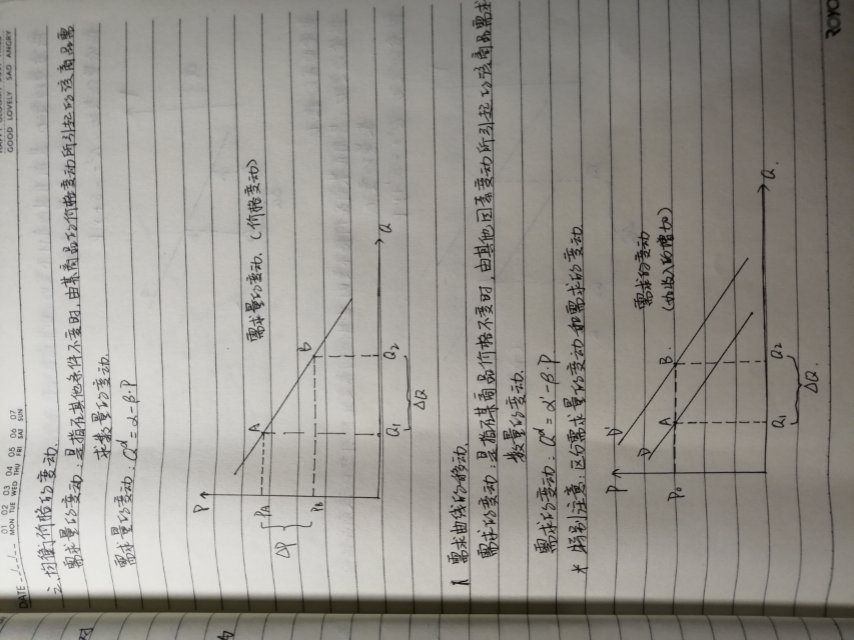 DATE
01 02 03 04 05 06 07
MON TUE WED THU FRI SAT SUN
GOOD LOVELY SAD ANGRY
二、均衡价格的变动.
需求量的变动：是指在其他条件不变时,由某商品的价格变动所引起的该商品需
求数量的变动.
需求量的变动：Qᵈ=α-β·P
需求量的变动.（价格变动）
P
PA
ΔP
PB
A
B
Q₁
Q₂
ΔQ
Q
1 需求曲线的移动.
需求的变动：是指在某商品价格不变时,由其他因素变动所引起的该商品需求
数量的变动.
需求的变动：Qᵈ=α'-β·P
* 特别注意：区分需求量的变动和需求的变动.
需求的变动
（如收入的增加）
P
D'
D
P₀
A
B
Q₁
Q₂
ΔQ.
Q.